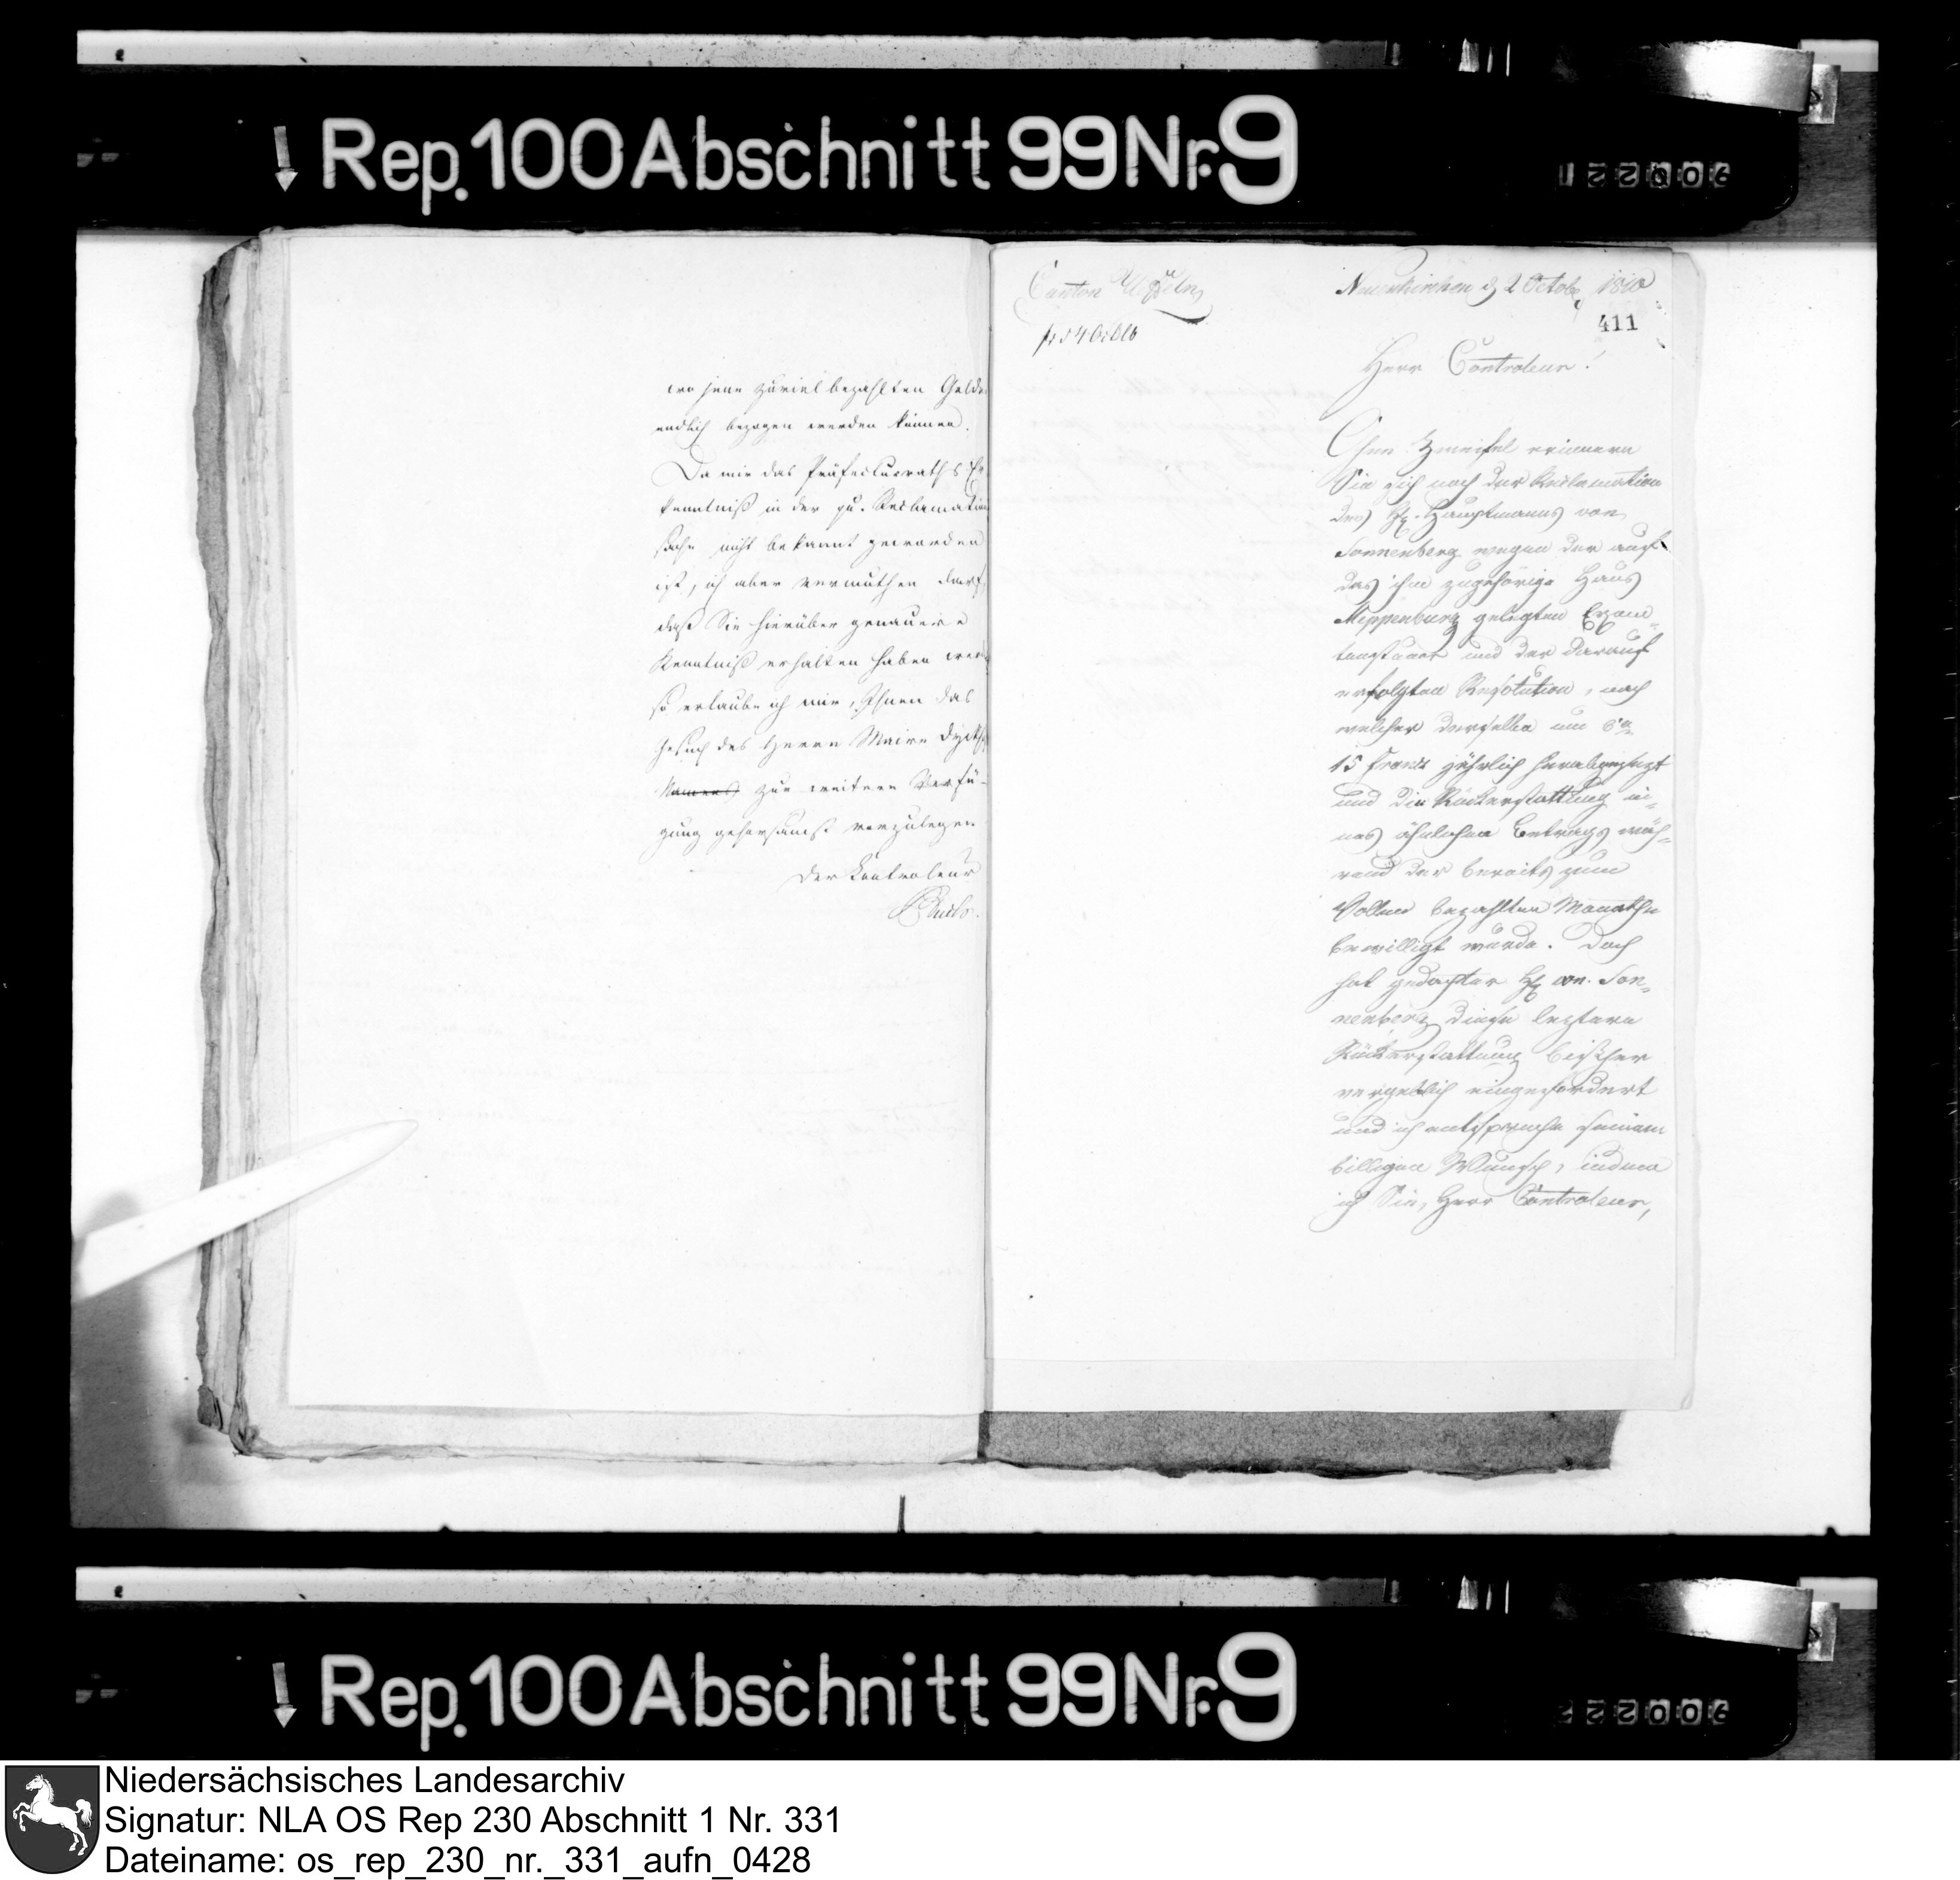 Rep. 100 Abschnitt 99 Nr. 9
wo jene zuviel bezahlten Gelde
endlich bezogen werden können.
Da mir das Präfecturraths Er
kenntniß in der qu. Reclamation
sache nicht bekannt geworden
ist, ich aber vermuthen darf,
daß Sie hierüber genauere
Kenntniß erhalten haben wer
so erlaube ich mir, Ihnen das
Gesuch des Herrn Maire
zur weitern Verfü-
gung gehorsamst vorzulegen
Der Kontroleur
Canton
Neuenkirchen d 2 Octobr 1810
411
Herr Controleur!
Ohne Zweifel erinnern
Sie sich noch der Reclamation
des H. Hauptmanns von
Sonnenberg wegen der auf
das ihm zugehörige Haus
Meppenburg gelegten
und der darauf
erfolgten Resolution, nach
welcher derselbe um
15 Franks jährlich herabgesezt
und die Rückerstattung ei-
nes ähnlichen Betrags wäh-
rend der bereits zum
Vollen bezahlten Monathe
bewilligt wurde. Doch
hat gedachter H. von Son-
nenberg diese leztere
Rückerstattung bisher
vergeblich eingefordert
und ich entspreche seinem
billigen Wunsch, indem
ich Sie, Herr Controleur,
Rep. 100 Abschnitt 99 Nr. 9
Niedersächsisches Landesarchiv
Signatur: NLA OS Rep 230 Abschnitt 1 Nr. 331
Dateiname: os_rep_230_nr._331_aufn_0428